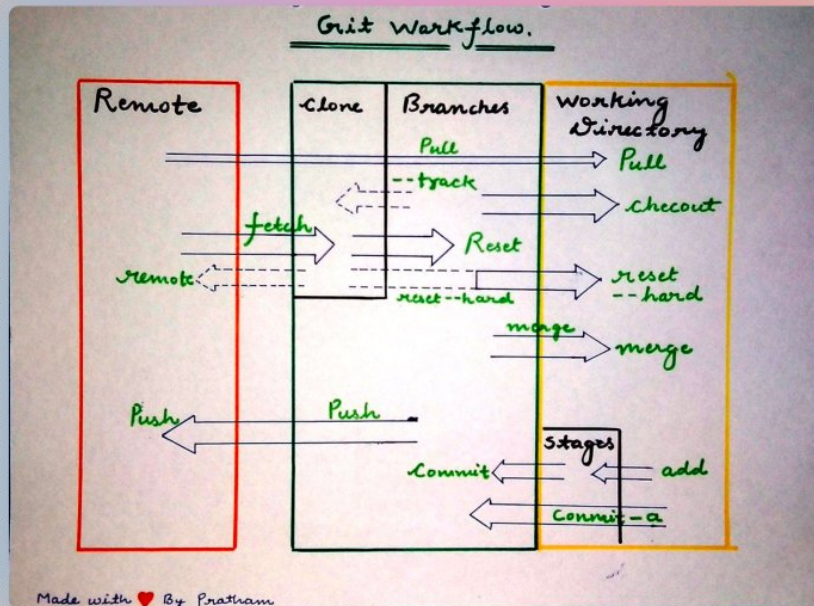 Git Workflow.
Remote
Clone
Branches
Working
Directory
Pull
Pull
--track
checout
fetch
Reset
remote
reset--hard
reset
--hard
merge
merge
Push
Push
Stages
Commit
add
Commit-a
Made with ❤ By Pratham